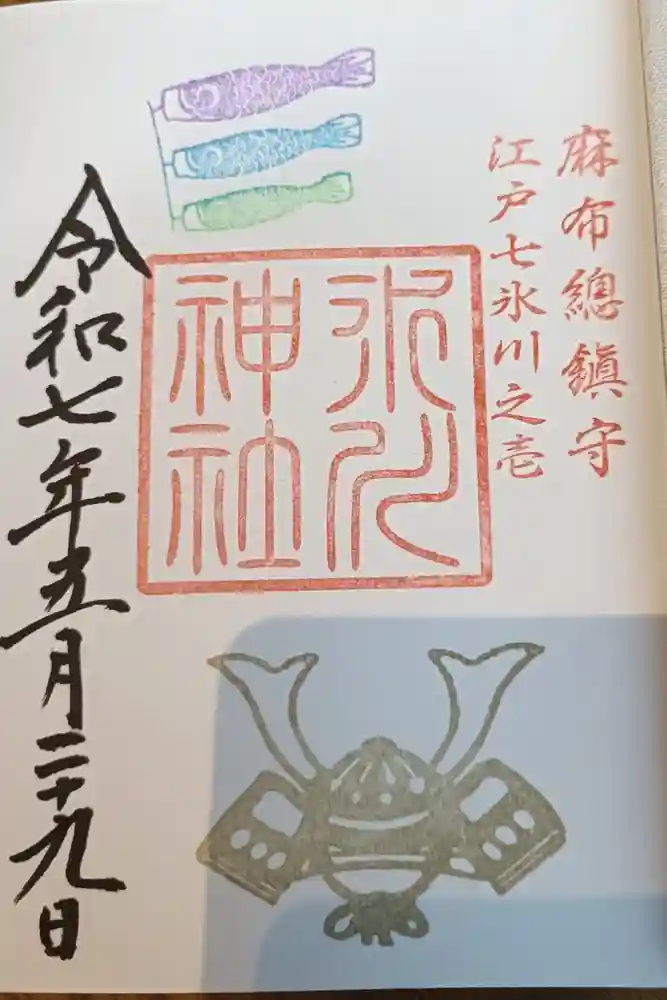 麻布總鎮守
江戸七氷川之壱
氷川
神社
令和七年五月二十九日